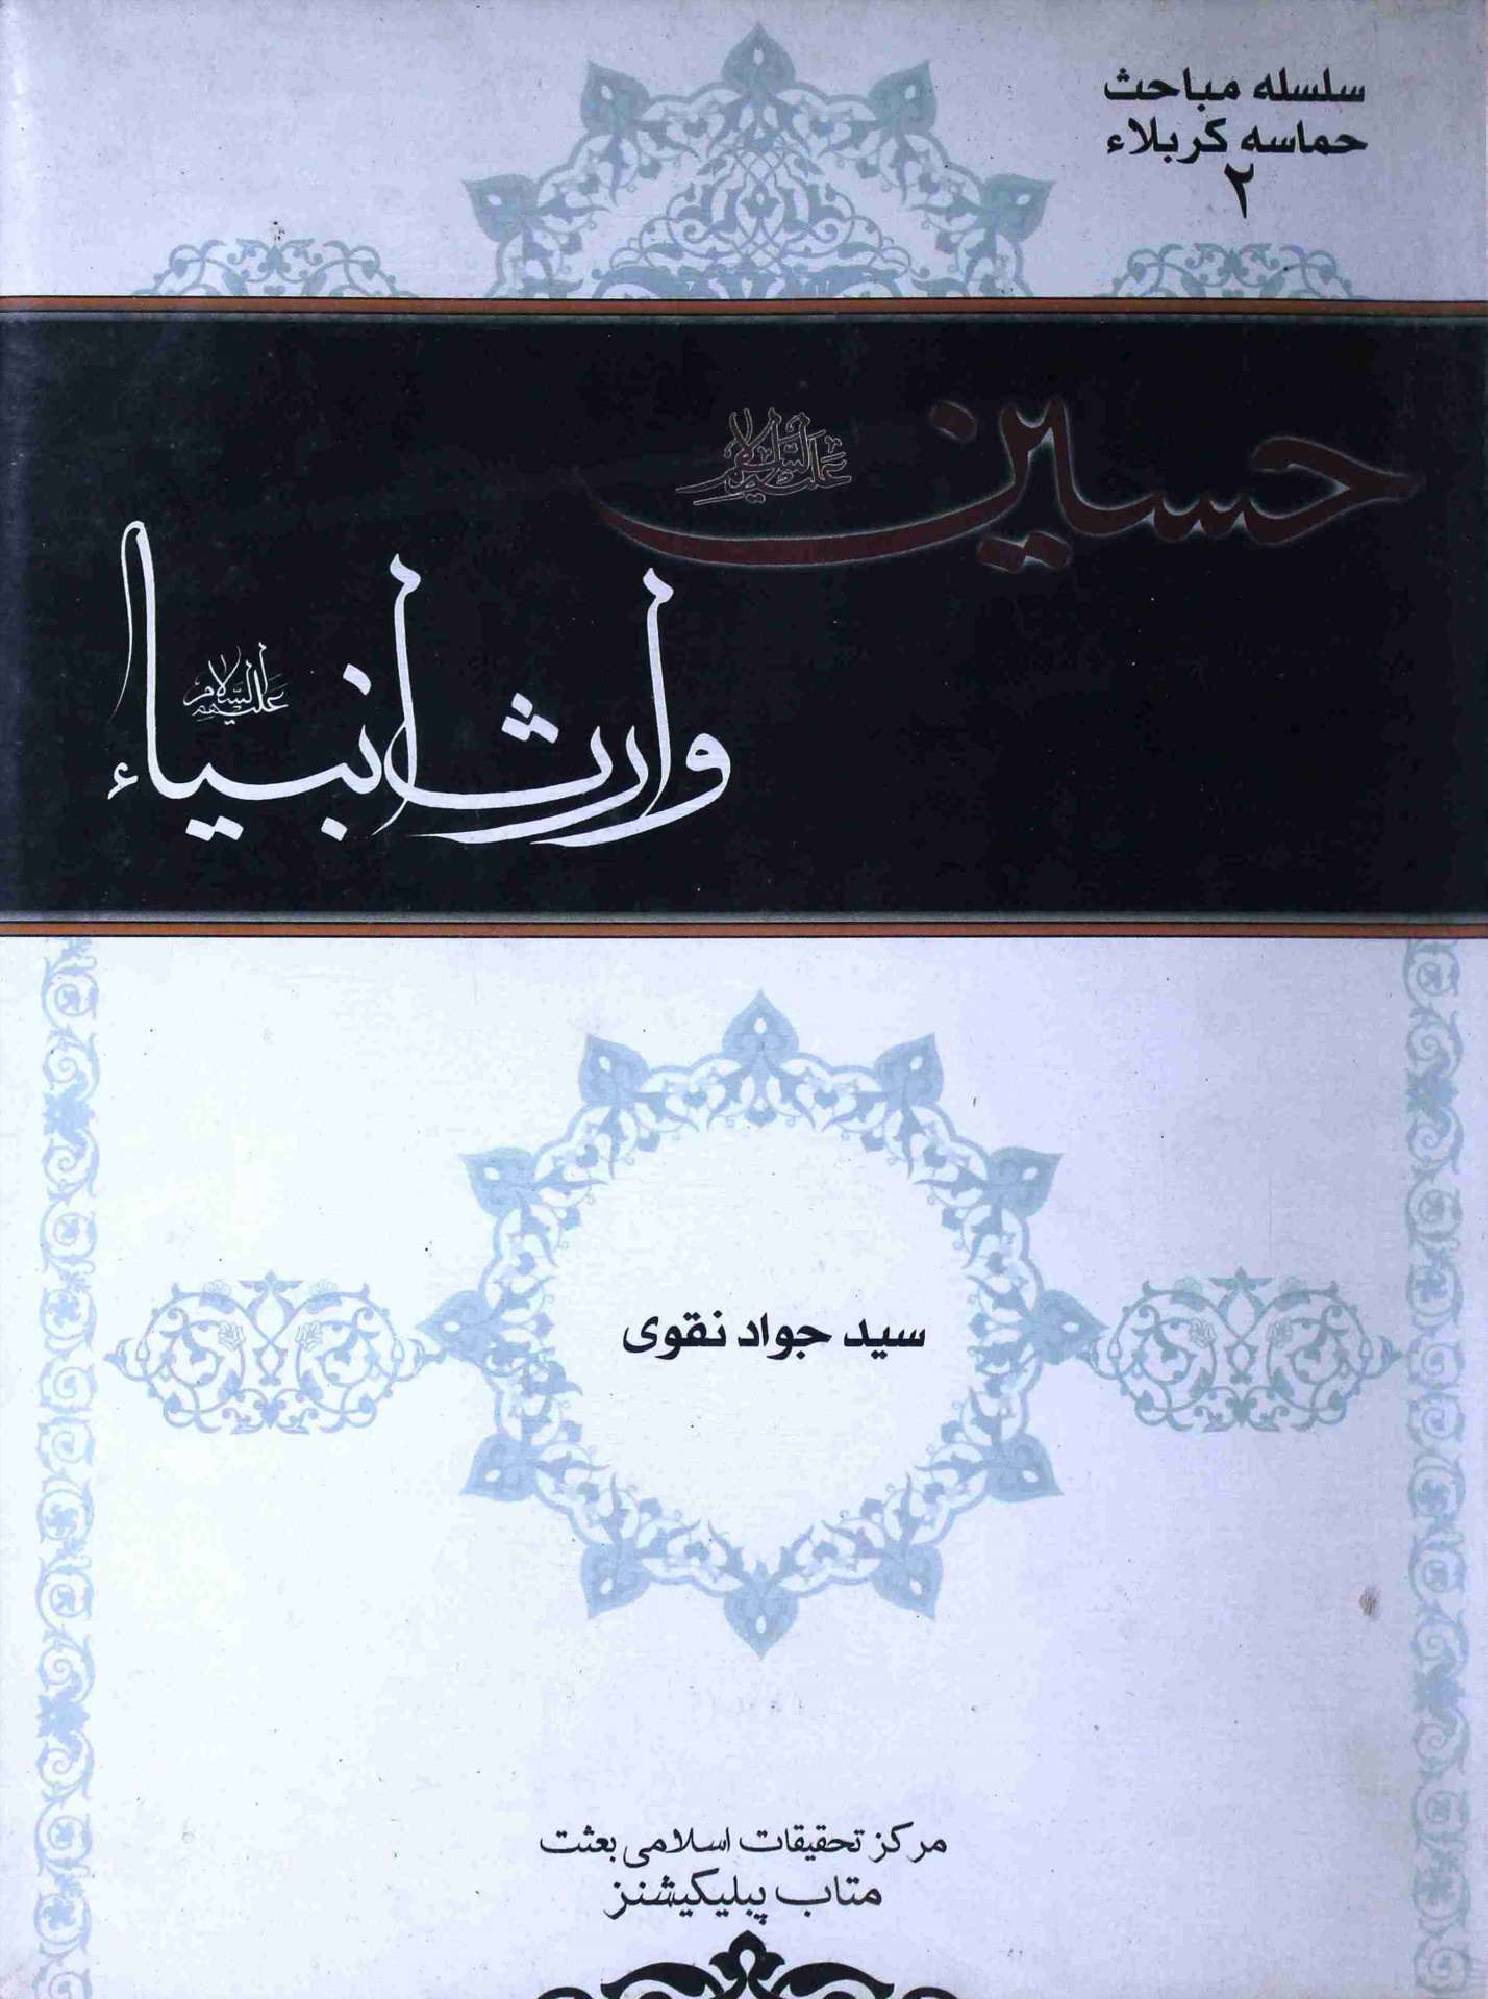 سلسله مباحث
حماسه کربلاء
۲
حسین علیہ السلام
وارث انبیاء علیہم السلام
سید جواد نقوی
مرکز تحقیقات اسلامی بعثت
متاب پبلیکیشنز